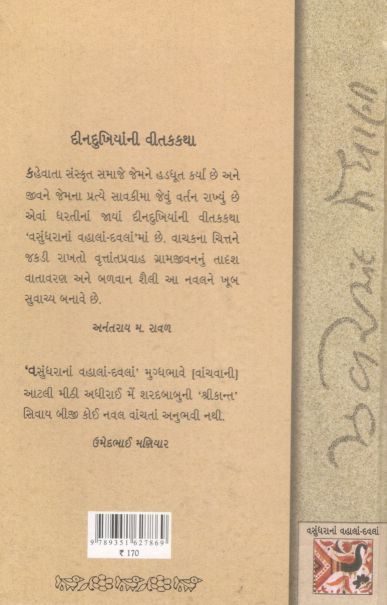 દીનદુખિયાંની વીતકકથા
કહેવાતા સંસ્કૃત સમાજે જેમને હડધૂત કર્યાં છે અને
જીવને જેમના પ્રત્યે સાવકીમા જેવું વર્તન રાખ્યું છે
એવાં ધરતીનાં જાયાં દીનદુખિયાંની વીતકકથા
‘વસુંધરાનાં વહાલાં-દવલાં’માં છે. વાચકના ચિત્તને
જકડી રાખતો વૃત્તાંતપ્રવાહ ગ્રામજીવનનું તાદશ
વાતાવરણ અને બળવાન શૈલી આ નવલને ખૂબ
સુવાચ્ય બનાવે છે.
અનંતરાય મ. રાવળ
‘વસુંધરાનાં વહાલાં-દવલાં’ મુગ્ધભાવે [વાંચવાની]
આટલી મીઠી અધીરાઈ મેં શરદબાબુની ‘શ્રીકાન્ત’
સિવાય બીજી કોઈ નવલ વાંચતાં અનુભવી નથી.
ઉમેદભાઈ મણિયાર
9 789351 627869
₹ 170
ઝવેરચંદ મેઘાણી
વસુંધરાનાં વહાલાં-દવલાં